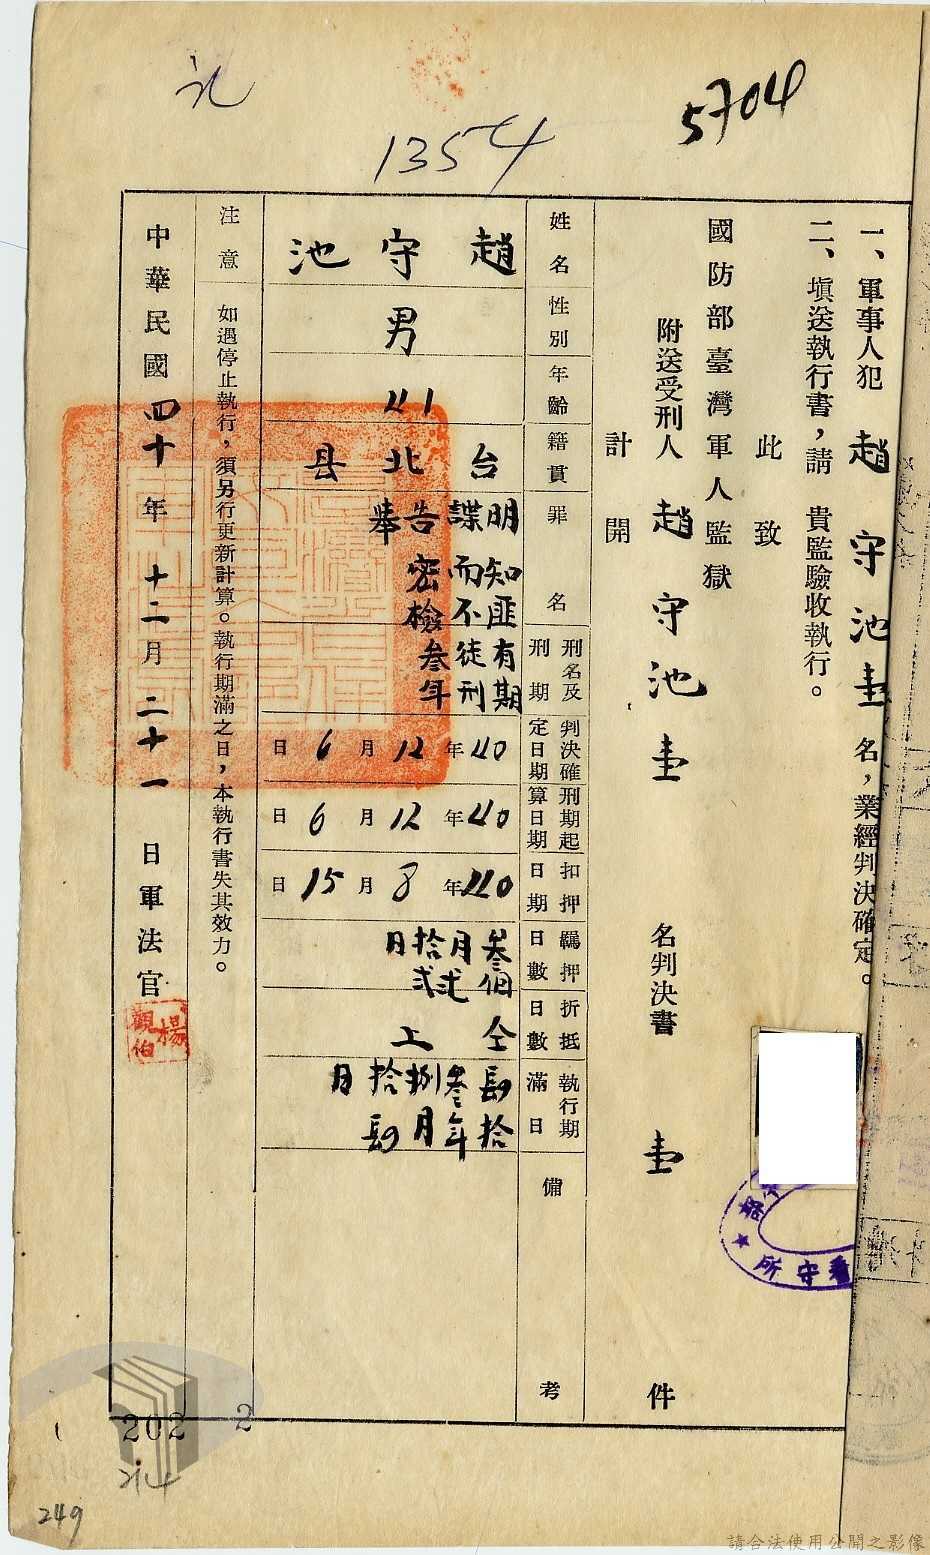 5704
1354
一、軍事人犯 趙守池 壹 名，業經判決確定。
二、塡送執行書，請 貴監驗收執行。
此致
國防部臺灣軍人監獄
附送受刑人 趙守池 壹 名判決書 壹 件
計開
姓名 趙守池
性別 男
年齡 41
籍貫 台北县
罪名 明知匪諜而不告密檢舉
刑名及刑期 有期徒刑叁年
判決確定日期 40年12月6日
刑期起算日期 40年12月6日
扣押日期 40年8月15日
羈押日數
折抵日數 仝上
執行期滿日
備考
注意 如遇停止執行，須另行更新計算。執行期滿之日，本執行書失其效力。
中華民國四十年十二月二十一日軍法官
楊觀伯
看守所
202
2
249
請合法使用公開之影像